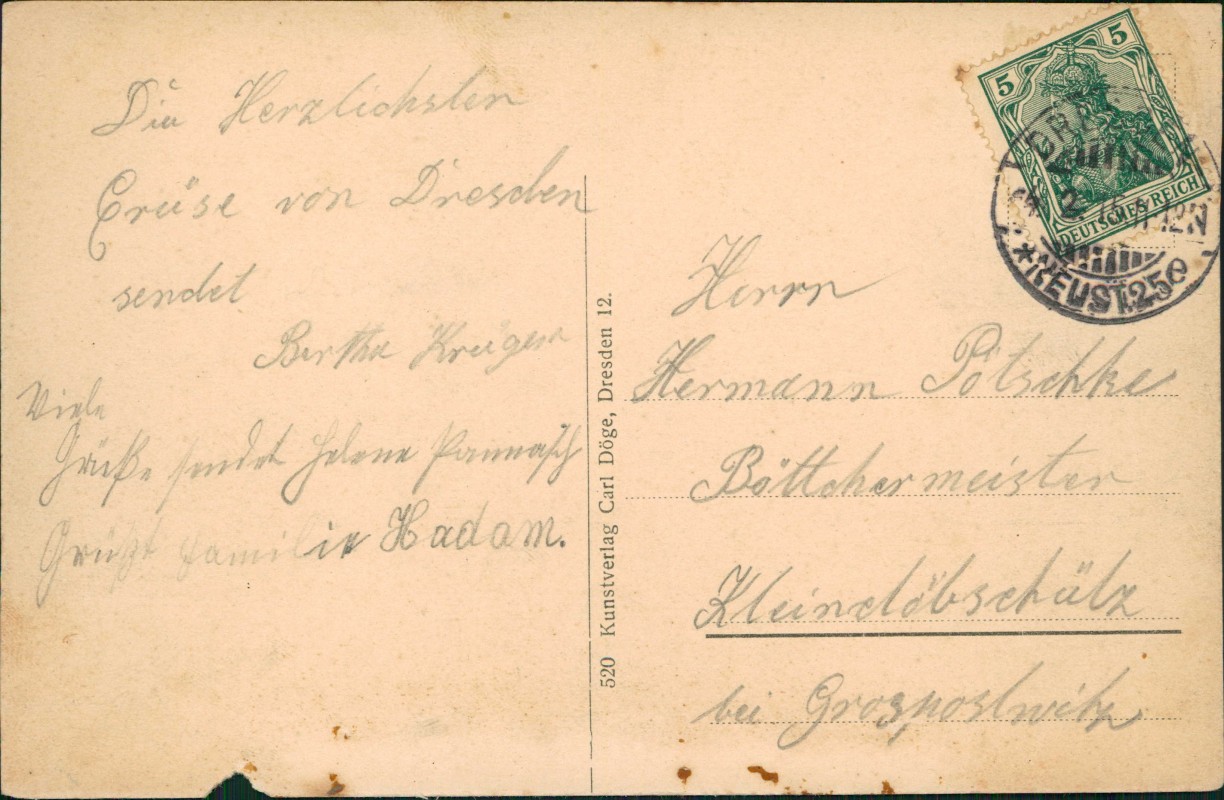 Die Herzlichsten
Grüse von Dresden
sendet
Bertha Krüger
Viele
Grüße sendet Helene Pannasch
Grüßt Familie Hadam.
520 Kunstverlag Carl Döge, Dresden 12.
5 5
DEUTSCHES REICH
DRES
2. 15. 11-12 N
* NEUST. 25 e
Herrn
Hermann Pötschke
Böttchermeister
Kleindöbschütz
bei Grospostwitz